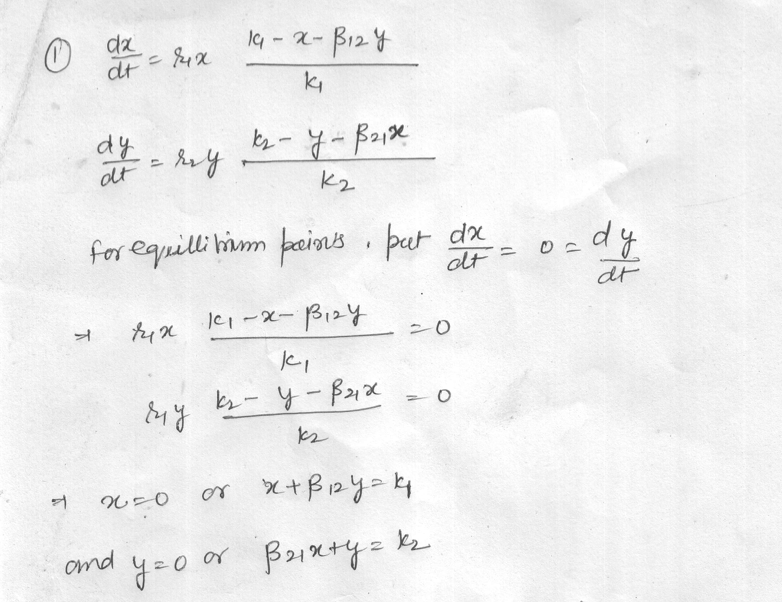 ① dx/dt = r₁x (k₁ - x - β₁₂y)/k₁
dy/dt = r₂y (k₂ - y - β₂₁x)/k₂
for equillibrium points, put dx/dt = 0 = dy/dt
⇒ r₁x (k₁ - x - β₁₂y)/k₁ = 0
r₁y (k₂ - y - β₂₁x)/k₂ = 0
⇒ x=0 or x+β₁₂y = k₁
and y=0 or β₂₁x+y = k₂